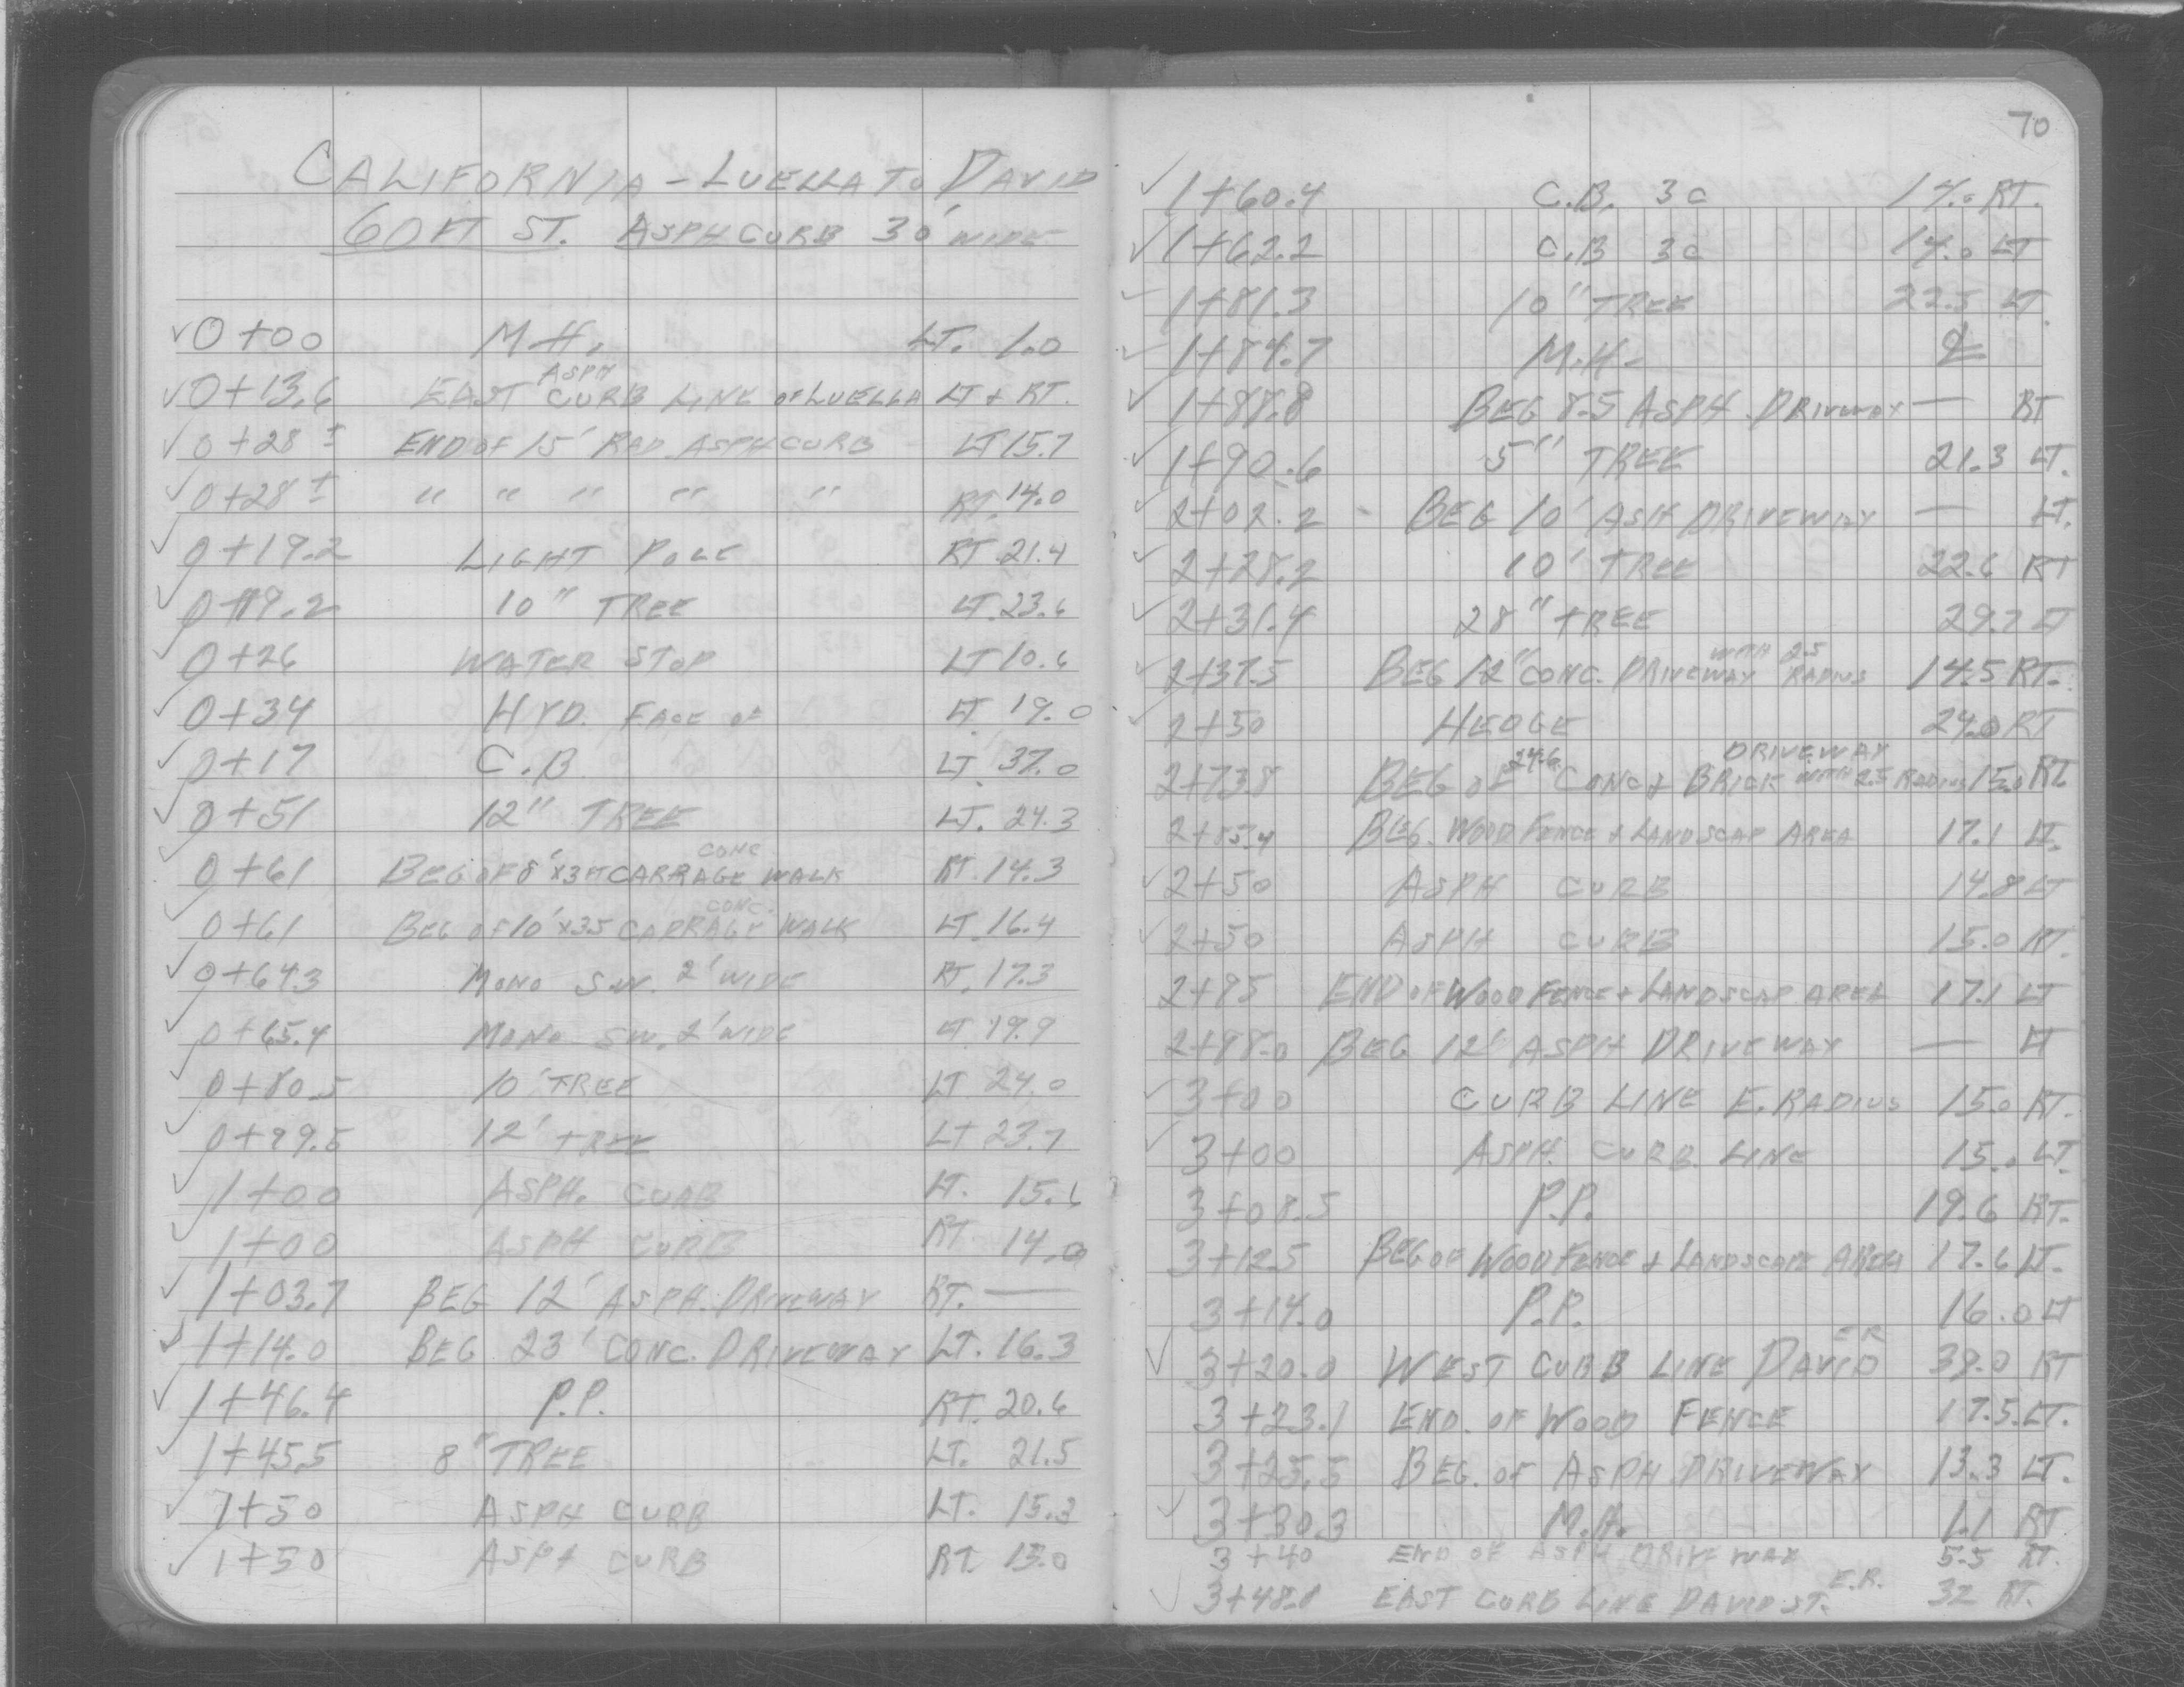 CALIFORNIA - LUELLA TO DAVID
60 FT ST. ASPH CURB 30' WIDE
✓ 0+00 M.H. LT. 1.0
✓ 0+13.6 EAST ASPH CURB LINE OF LUELLA LT + RT.
✓ 0+28± END OF 15' RAD. ASPH CURB LT 15.7
✓ 0+28± " " " " " RT. 14.0
✓ 0+19.2 LIGHT POLE RT. 21.4
✓ 0+19.2 10" TREE LT. 23.6
✓ 0+26 WATER STOP LT 10.6
✓ 0+34 HYD. FACE OF LT. 19.0
✓ 0+17 C.B. LT. 37.0
✓ 0+51 12" TREE LT. 24.3
✓ 0+61 BEG OF 8'X3FT CARRAGE CONC WALK RT. 14.3
✓ 0+61 BEG OF 10'X3.5 CARRAGE CONC. WALK LT. 16.4
✓ 0+64.3 MONO SW. 2' WIDE RT. 17.3
✓ 0+65.4 MONO SW. 2' WIDE LT. 19.9
✓ 0+80.5 10' TREE LT 24.0
✓ 0+99.5 12' TREE LT 23.7
✓ 1+00 ASPH. CURB LT. 15.6
✓ 1+00 ASPH CURB RT 14.0
✓ 1+03.7 BEG 12' ASPH. DRIVEWAY RT. —
✓ 1+14.0 BEG. 23' CONC. DRIVEWAY LT. 16.3
✓ 1+46.4 P.P. RT. 20.6
✓ 1+45.5 8" TREE LT. 21.5
✓ 1+50 ASPH CURB LT. 15.3
✓ 1+50 ASPH CURB RT. 15.0
70
✓ 1+60.4 C.B. 3C 14.0 RT.
✓ 1+62.2 C.B 3C 14.0 LT
✓ 1+81.3 10" TREE 22.5 LT.
✓ 1+84.7 M.H. ℄
✓ 1+88.8 BEG 8.5 ASPH. DRIVEWAY — RT
✓ 1+90.6 5" TREE 21.3 LT.
✓ 2+02.2 - BEG 10' ASH DRIVEWAY — LT.
✓ 2+28.2 10' TREE 22.6 RT
✓ 2+31.4 28" TREE 29.7 LT
✓ 2+37.5 BEG 12" CONC. DRIVEWAY WITH 2.5 RADIUS 14.5 RT.
✓ 2+50 HEDGE 24.0 RT
2+73.8 BEG OF 24.6 CONC + BRICK DRIVEWAY WITH 2.5 RADIUS 15.0 RT.
BEG. WOOD FENCE + LANDSCAP AREA 17.1 LT.
✓ 2+50 ASPH CURB 14.8 LT
✓ 2+50 ASPH CURB 15.0 RT.
2+95 END OF WOOD FENCE + LANDSCAP AREA 17.1 LT
2+98.0 BEG 12' ASPH DRIVEWAY — LT
✓ 3+00 CURB LINE E. RADIUS 15.0 RT.
✓ 3+00 ASPH. CURB LINE 15.0 LT.
3+08.5 P.P. 19.6 RT.
3+12.5 BEG OF WOOD FENCE + LANDSCAPE AREA 17.6 LT.
3+14.0 P.P. 16.0 LT
✓ 3+20.0 WEST CURB LINE DAVID E.R 39.0 RT
3+23.1 END. OF WOOD FENCE 17.5 LT.
3+25.5 BEG. OF ASPH DRIVEWAY 13.3 LT.
✓ 3+30.3 M.H. 1.1 RT
3+40 END OF ASPH DRIVEWAY 5.5 RT.
✓ 3+48.8 EAST CURB LINE DAVID ST. E.R. 32 RT.